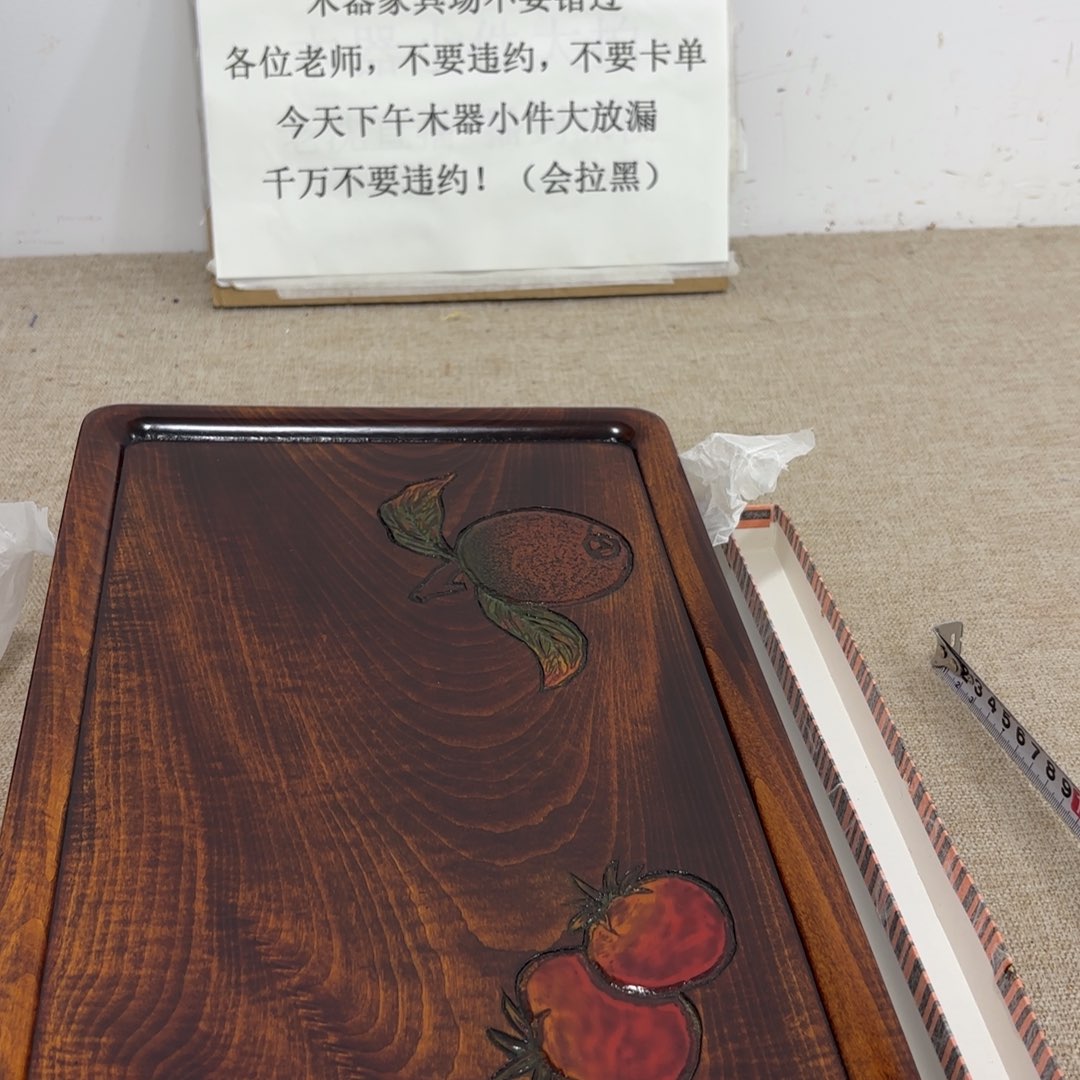 木器家具场不要错过
各位老师，不要违约，不要卡单
今天下午木器小件大放漏
千万不要违约！（会拉黑）
2 3 4 5 6 7 8 9